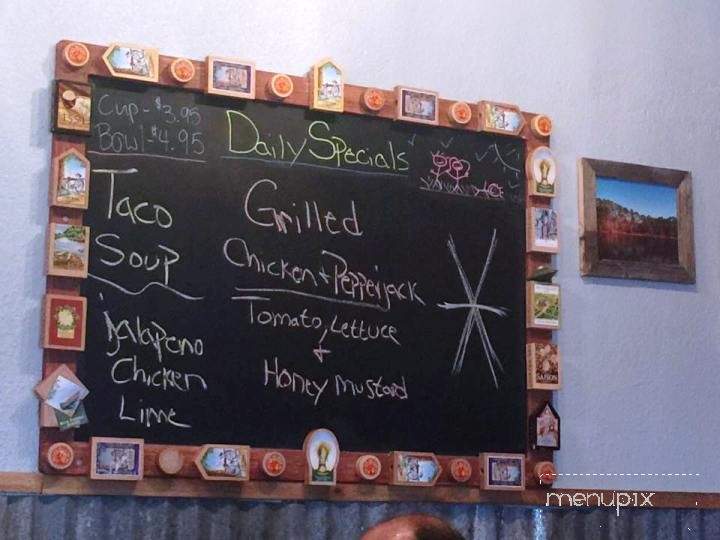 Cup - $3.95
Bowl - $4.95
Daily Specials
Taco
Soup
Jalapeno
Chicken
Lime
Grilled
Chicken + Pepperjack
Tomato, Lettuce
+
Honey mustard
menupix